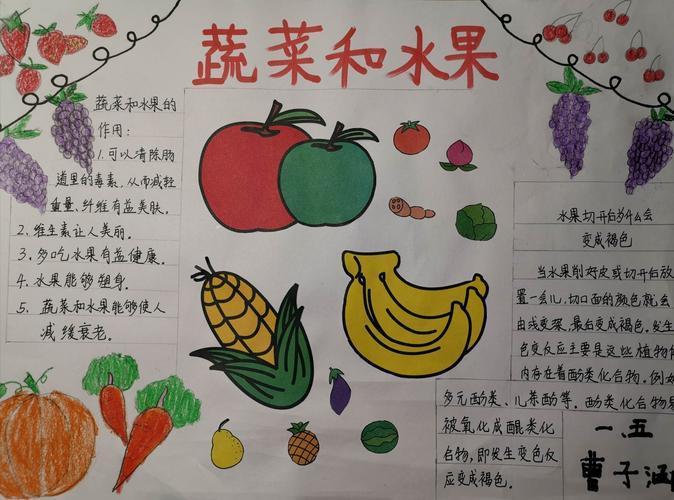 蔬菜和水果
蔬菜和水果的
作用:
1.可以清除肠
道里的毒素,从而减轻
重量、纤维有益美肤。
2、维生素让人美丽。
3、多吃水果有益健康。
4、水果能够塑身。
5、蔬菜和水果能够使人
减缓衰老。
水果切开后为什么会
变成褐色
当水果削好皮或切开后放
置一会儿,切口面的颜色就会
由浅变深,最后变成褐色。发生
色变反应主要是这些植物体
内存在着酚类化合物。例如
多元酚类、儿茶酚等。酚类化合物易
被氧化成醌类化
合物,即发生变色反
应变成褐色。
一.五
曹子涵